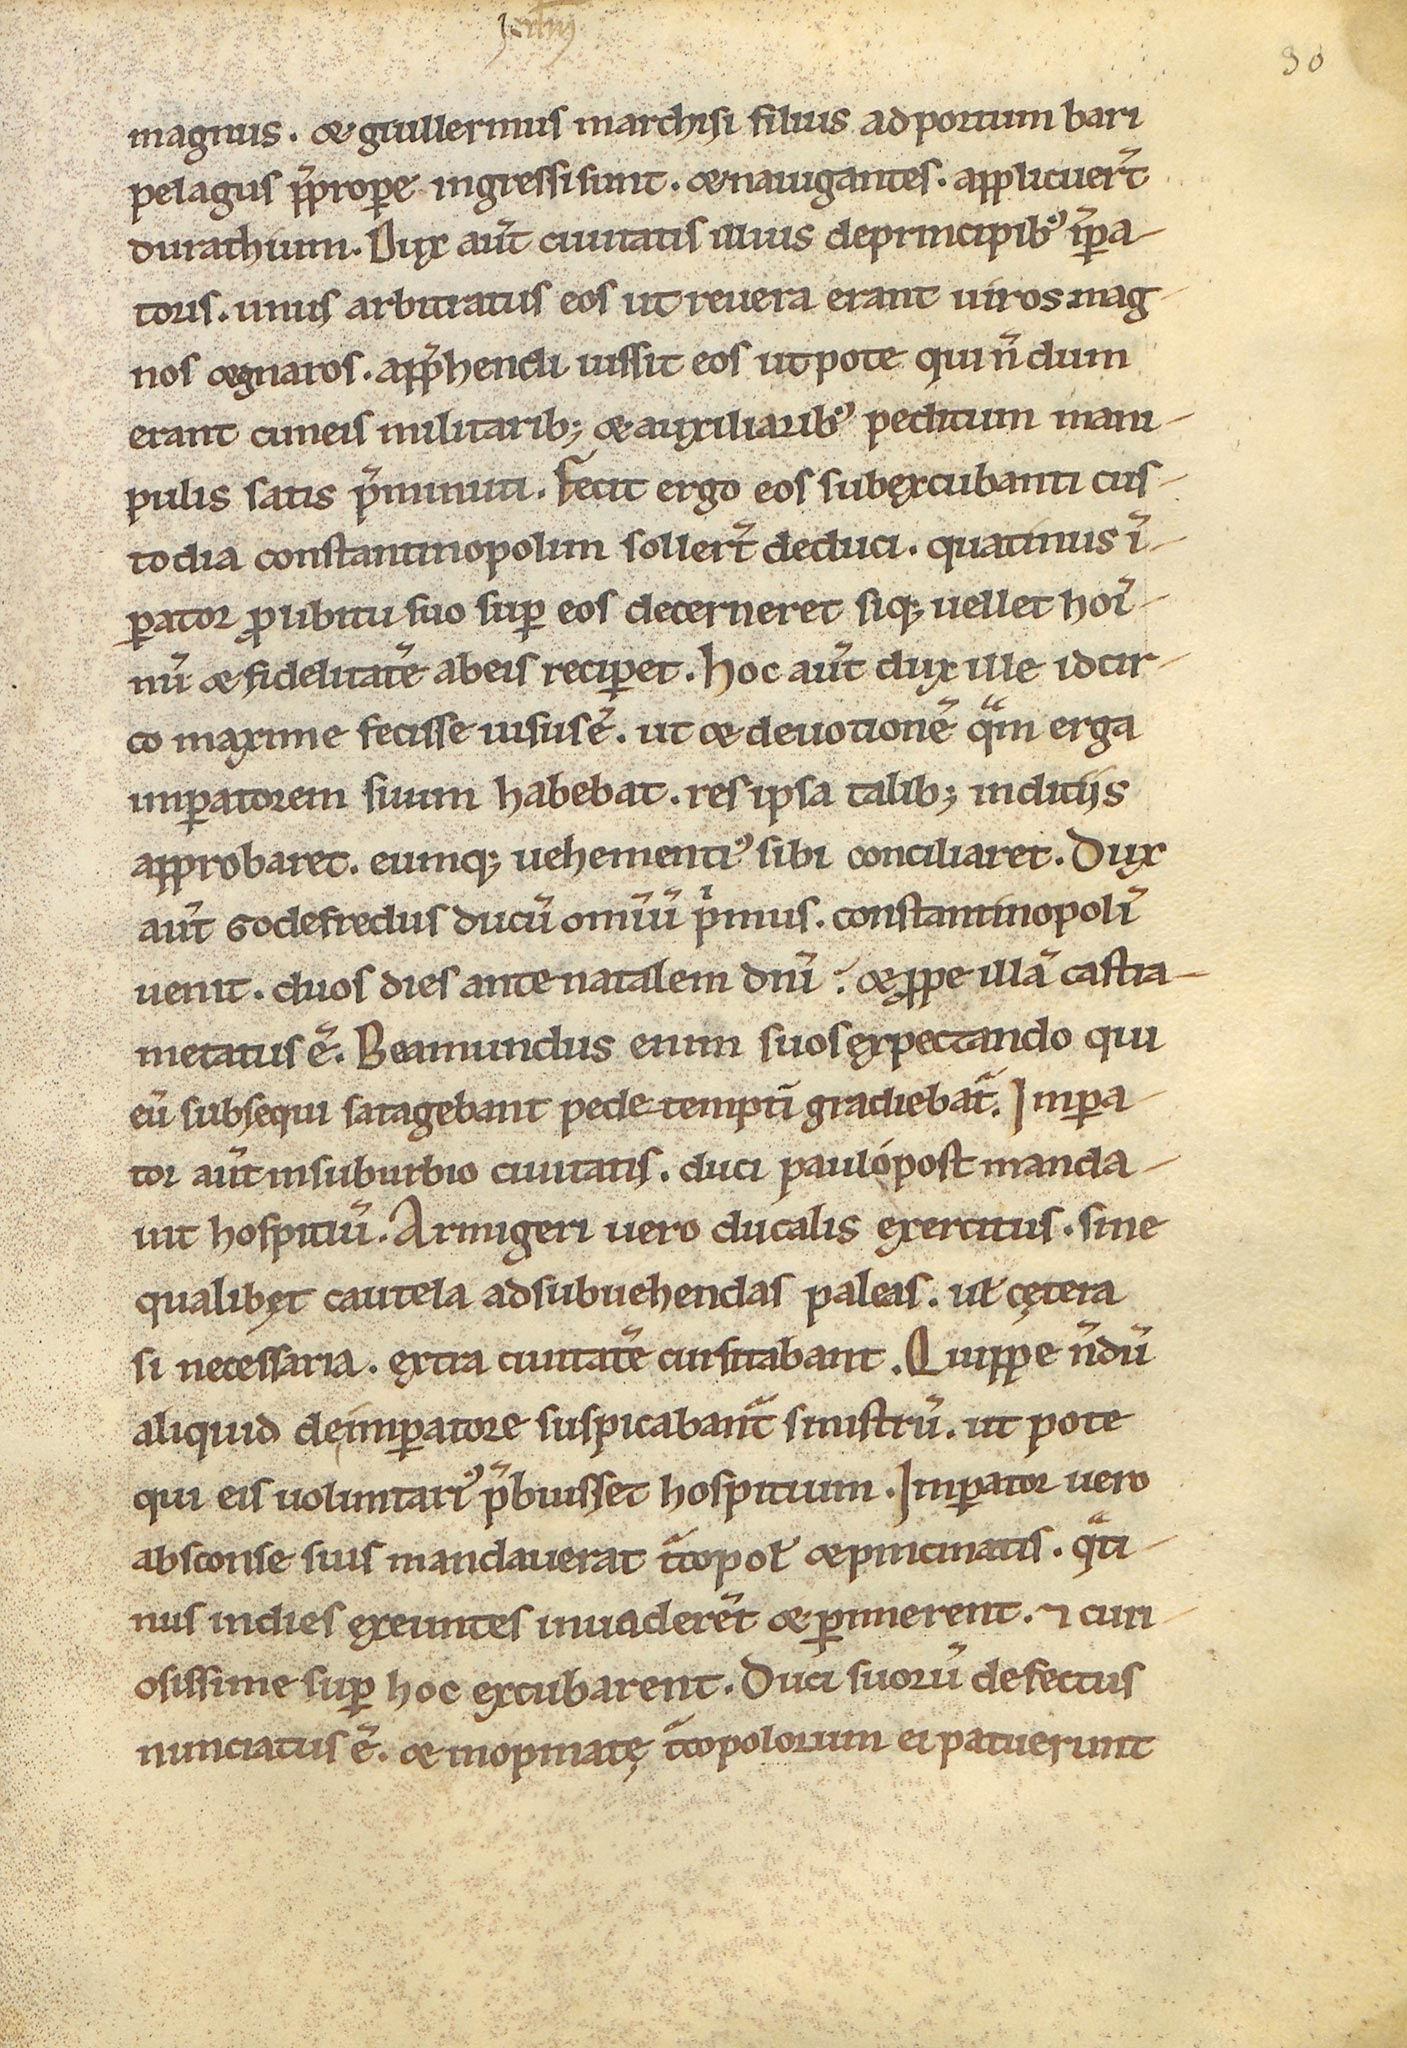 30
magnus. & guillermus marchisi filius ad portum bari
pelagus p̄prope ingressi sunt. & nauigantes. applicuer̄t
durathium. Dux aūt ciuitatis illius de principibꝰ īpa-
toris. unus arbitratus eos ut reuera erant uiros mag-
nos & gnaros. app̄hendi iussit eos utpote qui n̄dum
erant cuneis militarib; & auxiliaribꝰ peditum mani-
pulis satis p̄muniti. Fecit ergo eos sub excubanti cus-
todia constantinopolim soller̄t deduci. quatinus ī-
pator ꝓ libitu suo suꝑ eos decerneret siq; uellet hoī-
nū & fidelitatē ab eis reciꝑet. Hoc aūt dux ille idcir-
co maxime fecisse uisus ē. ut & deuotionē q̄m erga
imꝑatorem suum habebat. res ipsa talib; inditiis
approbaret. eumq; uehementiꝰ sibi conciliaret. Dux
aūt Godefredus ducū omīū p̄mus. constantinopolī
uenit. duos dies ante natalem dn̄i. & ꝓpe illā castra-
metatus ē. Boamundus enim suos expectando qui
eū subsequi satagebant pedetemptī gradiebat̄. Imꝑa-
tor aūt in suburbio ciuitatis. duci paulo post manda-
uit hospitiū. Armigeri uero ducalis exercitus. sine
qualibet cautela ad subuehendas paleas. uł cętera
si necessaria. extra ciuitatē cursitabant. Quippe n̄dū
aliquid de imꝑatore suspicaban̄t sinistrū. ut pote
qui eis uoluntariꝰ p̄buisset hospitium. Imꝑator uero
absconse suis mandauerat t̄copoł & pincinatis. q̄ti-
nus in dies exeuntes inuaderēt & ꝑimerent. ⁊ curi-
osissime suꝑ hoc excubarent. Duci suorū defectus
nunciatus ē. & inopinatę t̄copolorum ei patuerunt